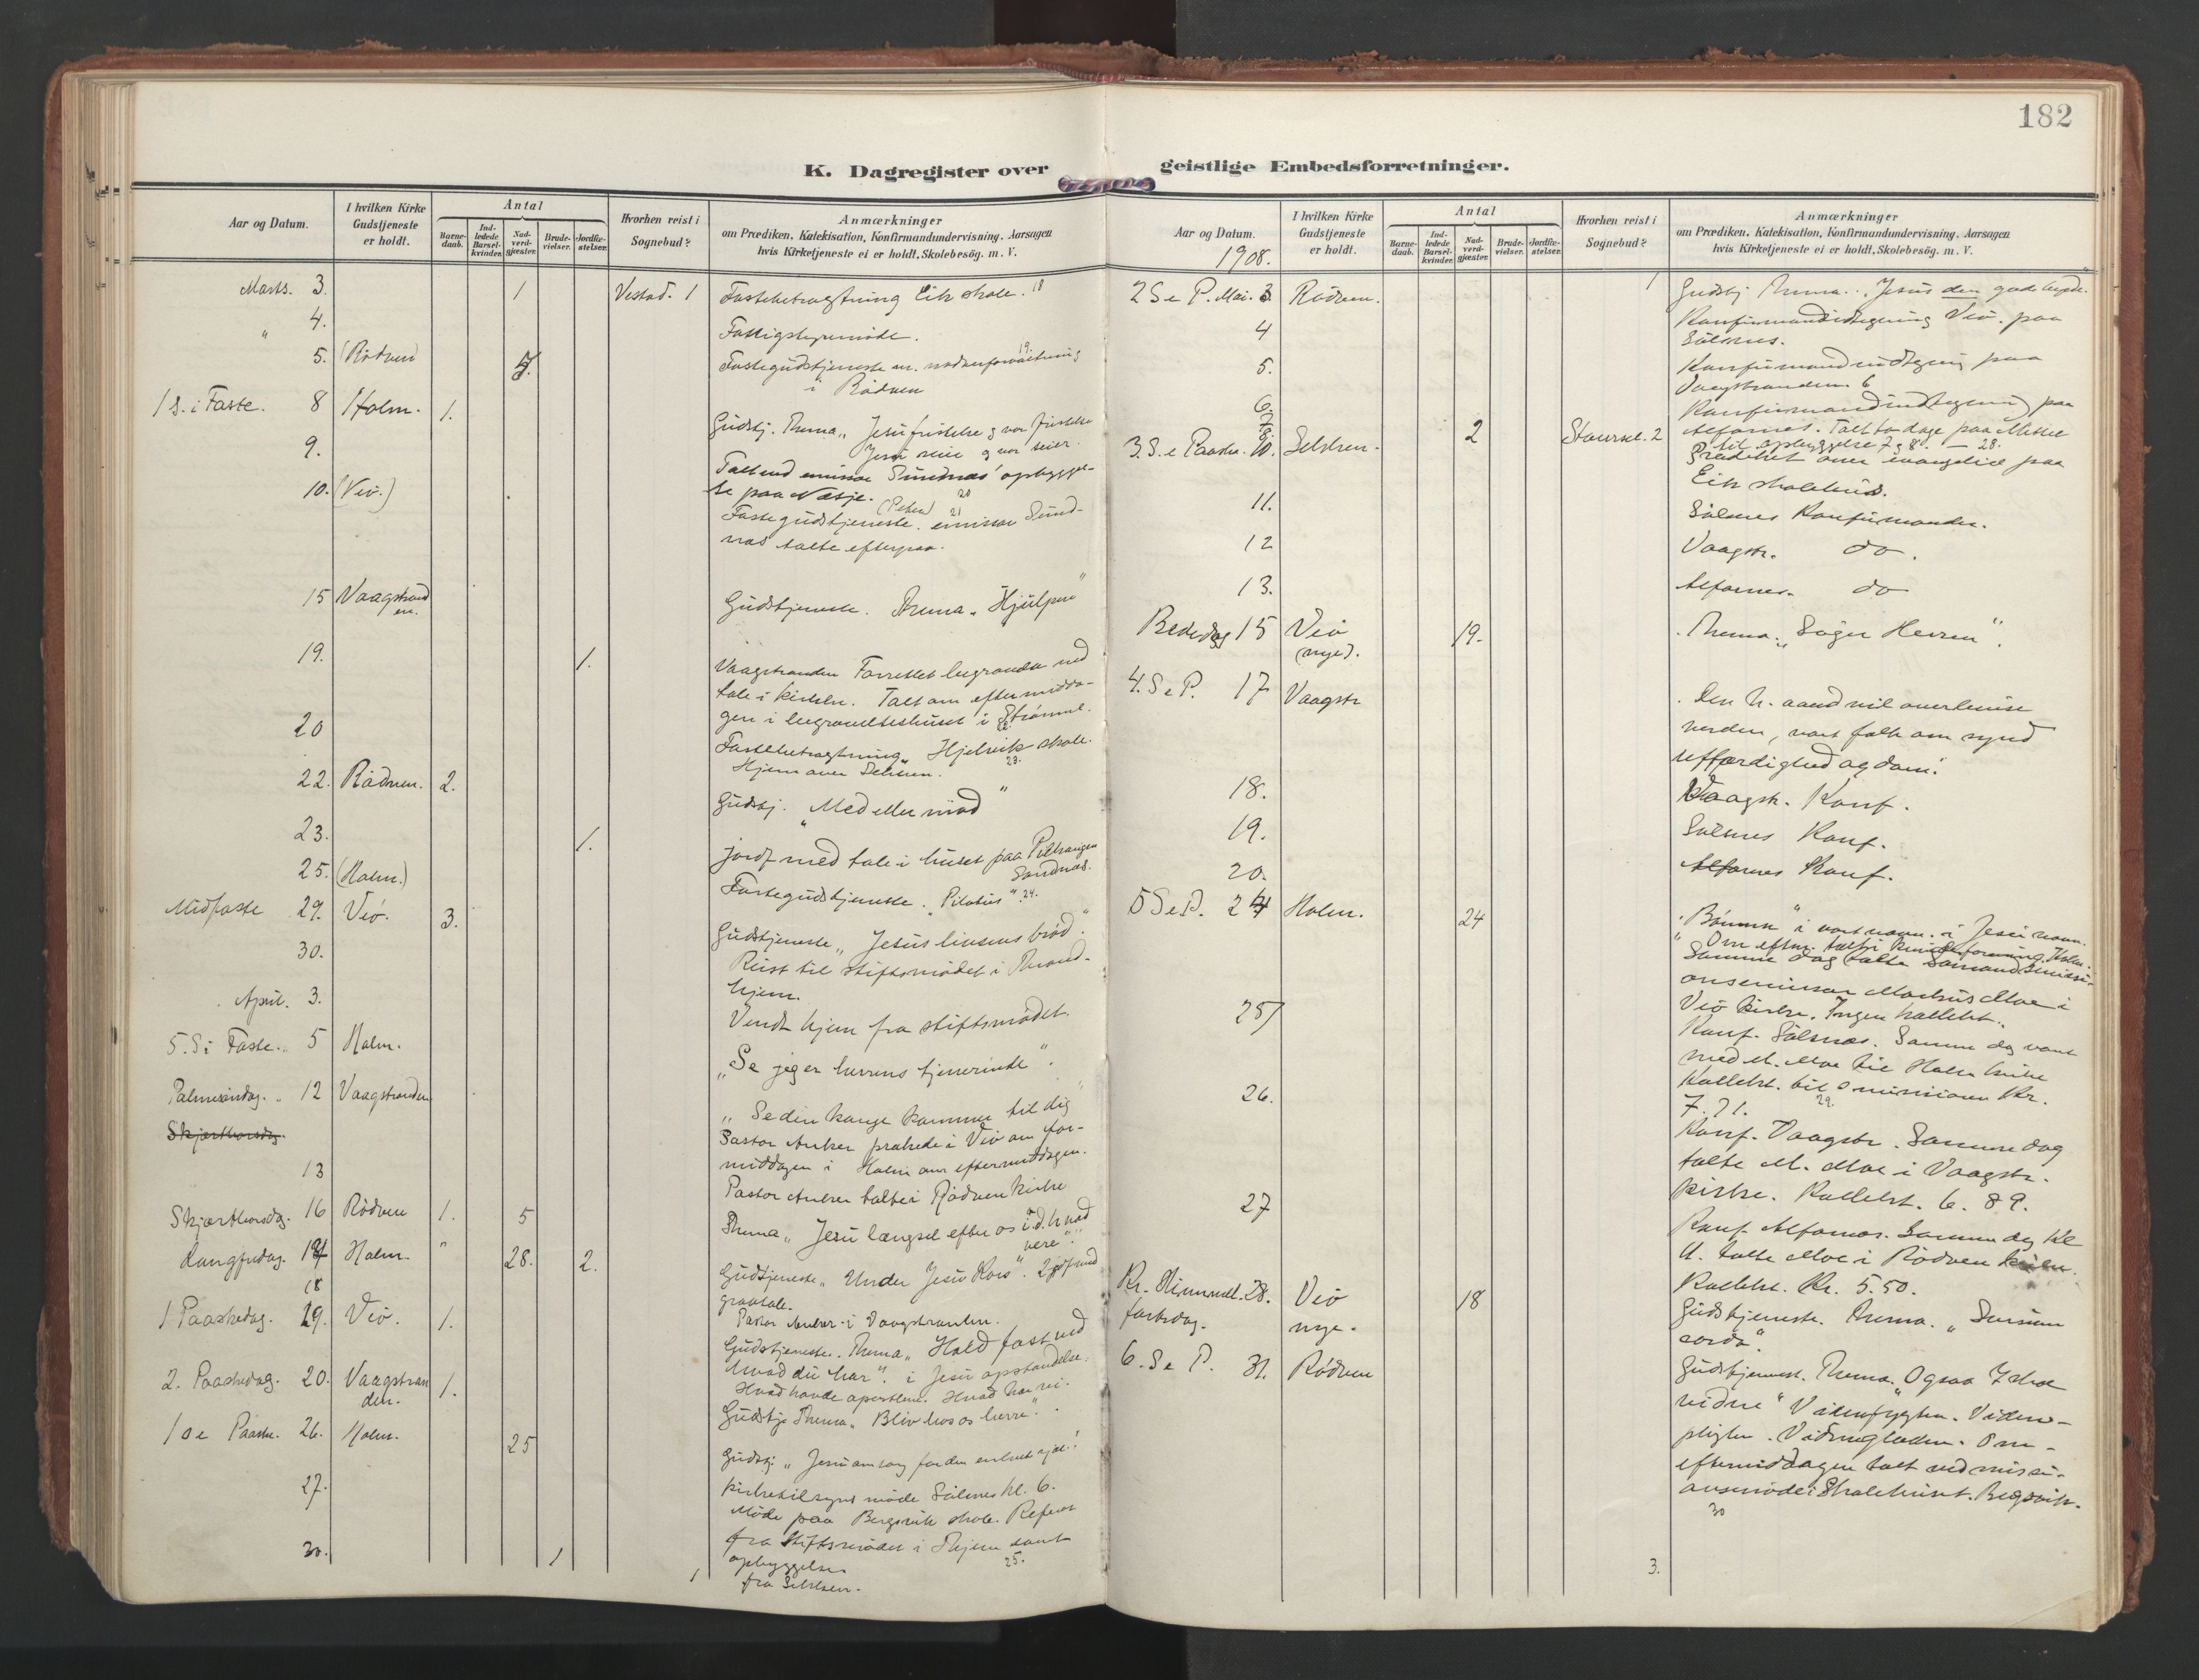 182
K. Dagregister over geistlige Embedsforretninger.
Aar og Datum.
I hvilken Kirke Gudstjeneste er holdt.
Antal
Barne-daab.
Ind-ledede Barsel-kvinder.
Nad-verd-gjæster.
Brude-vielser.
Jordfæ-stelser.
Hvorhen reist i Sognebud?
Anmærkninger
om Prædiken, Katekisation, Konfirmandundervisning, Aarsagen
hvis Kirketjeneste ei er holdt, Skolebesög. m. V.
Marts. 3. 1 Vestad. 1 Fastebetragtning Eik skole. 18
" 4. Fattigstyremöde.
5. (Rödven) Fastegudstjeneste 19.
i Rödven
1 S. i Faste. 8 Holm. 1. Gudstj. Thema „Jesu fristelse og vor fristelse
Jesu seier og vor seier.
9. Talt ved emissær Sundnæs' opbyggel-
se paa Næsje. 20
10. (Veö.) Fastegudstjeneste. (Peter) 21 emissær Sund-
næs talte efterpaa.
15 Vaagstranden. Gudstjeneste. Thema „Hjælpen"
19. 1. Vaagstranden Forrettet begravelse med
tale i kirken. Talt om eftermidda-
gen i begravelseshuset i
20 Fastebetragtning Hjelvik skole.
Hjem over 23.
22. Rödven. 2. Gudstj. „Med eller mod"
23. 1. jordf. med tale i huset paa
Sandnes.
25. (Holm.) Fastegudstjeneste. „Pilatus". 24.
Midfaste 29. Veö. 3. Gudstjeneste „Jesus livsens bröd".
30. Reist til stiftsmödet i Thrond-
hjem.
April. 3. Vendt hjem fra stiftsmödet.
5. S i Faste. 5 Holm. „Se jeg er herrens tjenerinde".
Palmesöndag. 12 Vaagstranden „Se din konge kommer til dig"
Pastor Anker prækede i Veö om for-
middagen i Holm om eftermiddagen.
Skjærthorsdg.
13 Pastor Anker talte i Rödven kirke
Skjærthorsdg. 16 Rödven 1. 5 Thema „Jesu længsel efter os i d. h. nad
vere".
Langfredag. Holm. " 28. 2. Gudstjeneste „Under Jesu Kors". 2 jordf. med
gravtale.
18 Pastor Anker i Vaagstranden.
1 Paaskedag. 19. Veö. 1. Gudstjeneste. Thema „Hold fast ved
hvad du har". i Jesu opstandelse.
Hvad havde apostlene. Hvad har vi.
2. Paaskedag. 20. Vaagstranden. 1. Gudstj. Thema „Bliv hos os herre".
1 S e Paaske. 26. Holm. 25 Gudstj. „Jesu omsorg for den enkelte sjæl"
27. Kirketilsyns möde Sölsnes kl. 6.
Möde paa Bergsvik skole. Referat
fra Stiftsmödet i Thjem samt
opbyggelse 25.
30. 1 1 fra Selsken.
Aar og Datum.
1908.
I hvilken Kirke Gudstjeneste er holdt.
Antal
Barne-daab.
Ind-ledede Barsel-kvinder.
Nad-verd-gjæster.
Brude-vielser.
Jordfæ-stelser.
Hvorhen reist i Sognebud?
Anmærkninger
om Prædiken, Katekisation, Konfirmandundervisning, Aarsagen
hvis Kirketjeneste ei er holdt, Skolebesög. m. V.
2 S e P. Mai. 3. Rödven. 1 Gudstj Thema „Jesus den gode hyrde"
4 Konfirmandindtegning Veö. paa
Sölsnes.
5. Konfirmandindtegning paa
Vaagstranden. 6
6. Konfirmandindtegning paa
Alfarnes. Talt to dage paa
til opbyggelse 7 og 8. — 28.
3. S. e Paaske. 10. 2 2 Prædiket over evangeliet paa
Eik skolehus.
11. Sölsnes Konfirmander.
12 Vaagstr. do.
13. Alfarnes. do
Bededag 15 Veö (nye). 19. Thema: „Söger Herren".
4. S e P. 17 Vaagstr „Den h. aand vil overbevise
verden, vort folk om synd
retfærdighed og dom".
18. Vaagstr. Konf.
19. Sölsnes Konf.
20. Alfarnes Konf.
5 S e P. 24 Holm. 24 „Bönnen" i vort navn. i Jesu navn.
Om efterm. talt i Holm.
Samme dag talte sömandsmissi-
onsemissær Markus Moe i
Veö kirke. Ingen kollekt.
25 Konf. Sölsnæs. Samme dag var
med M. Moe til Holm kirke
Kollekt. til missionen Kr.
7.71. 29.
26. Konf. Vaagstr. Samme dag
talte M. Moe i Vaagstr.
kirke. Kollekt. 6.89.
27 Konf. Alfarnæs. Samme dag kl
11. talte Moe i Rödven kirke.
Kollekt. Kr. 5.50.
Kr. Himmel. 28. Veö 18 Gudstjeneste. Thema. „Sursum
fartsdag. nye. corda".
6. S e P. 31. Rödven Gudstjeneste. Thema. „Ogsaa I skal
vidne" Vidnefrygten. Vidne-
pligten. Vidneglæden. Om
eftermiddagen talt ved missi-
onsmöde i Skolehuset. Bergsvik.
30
3.